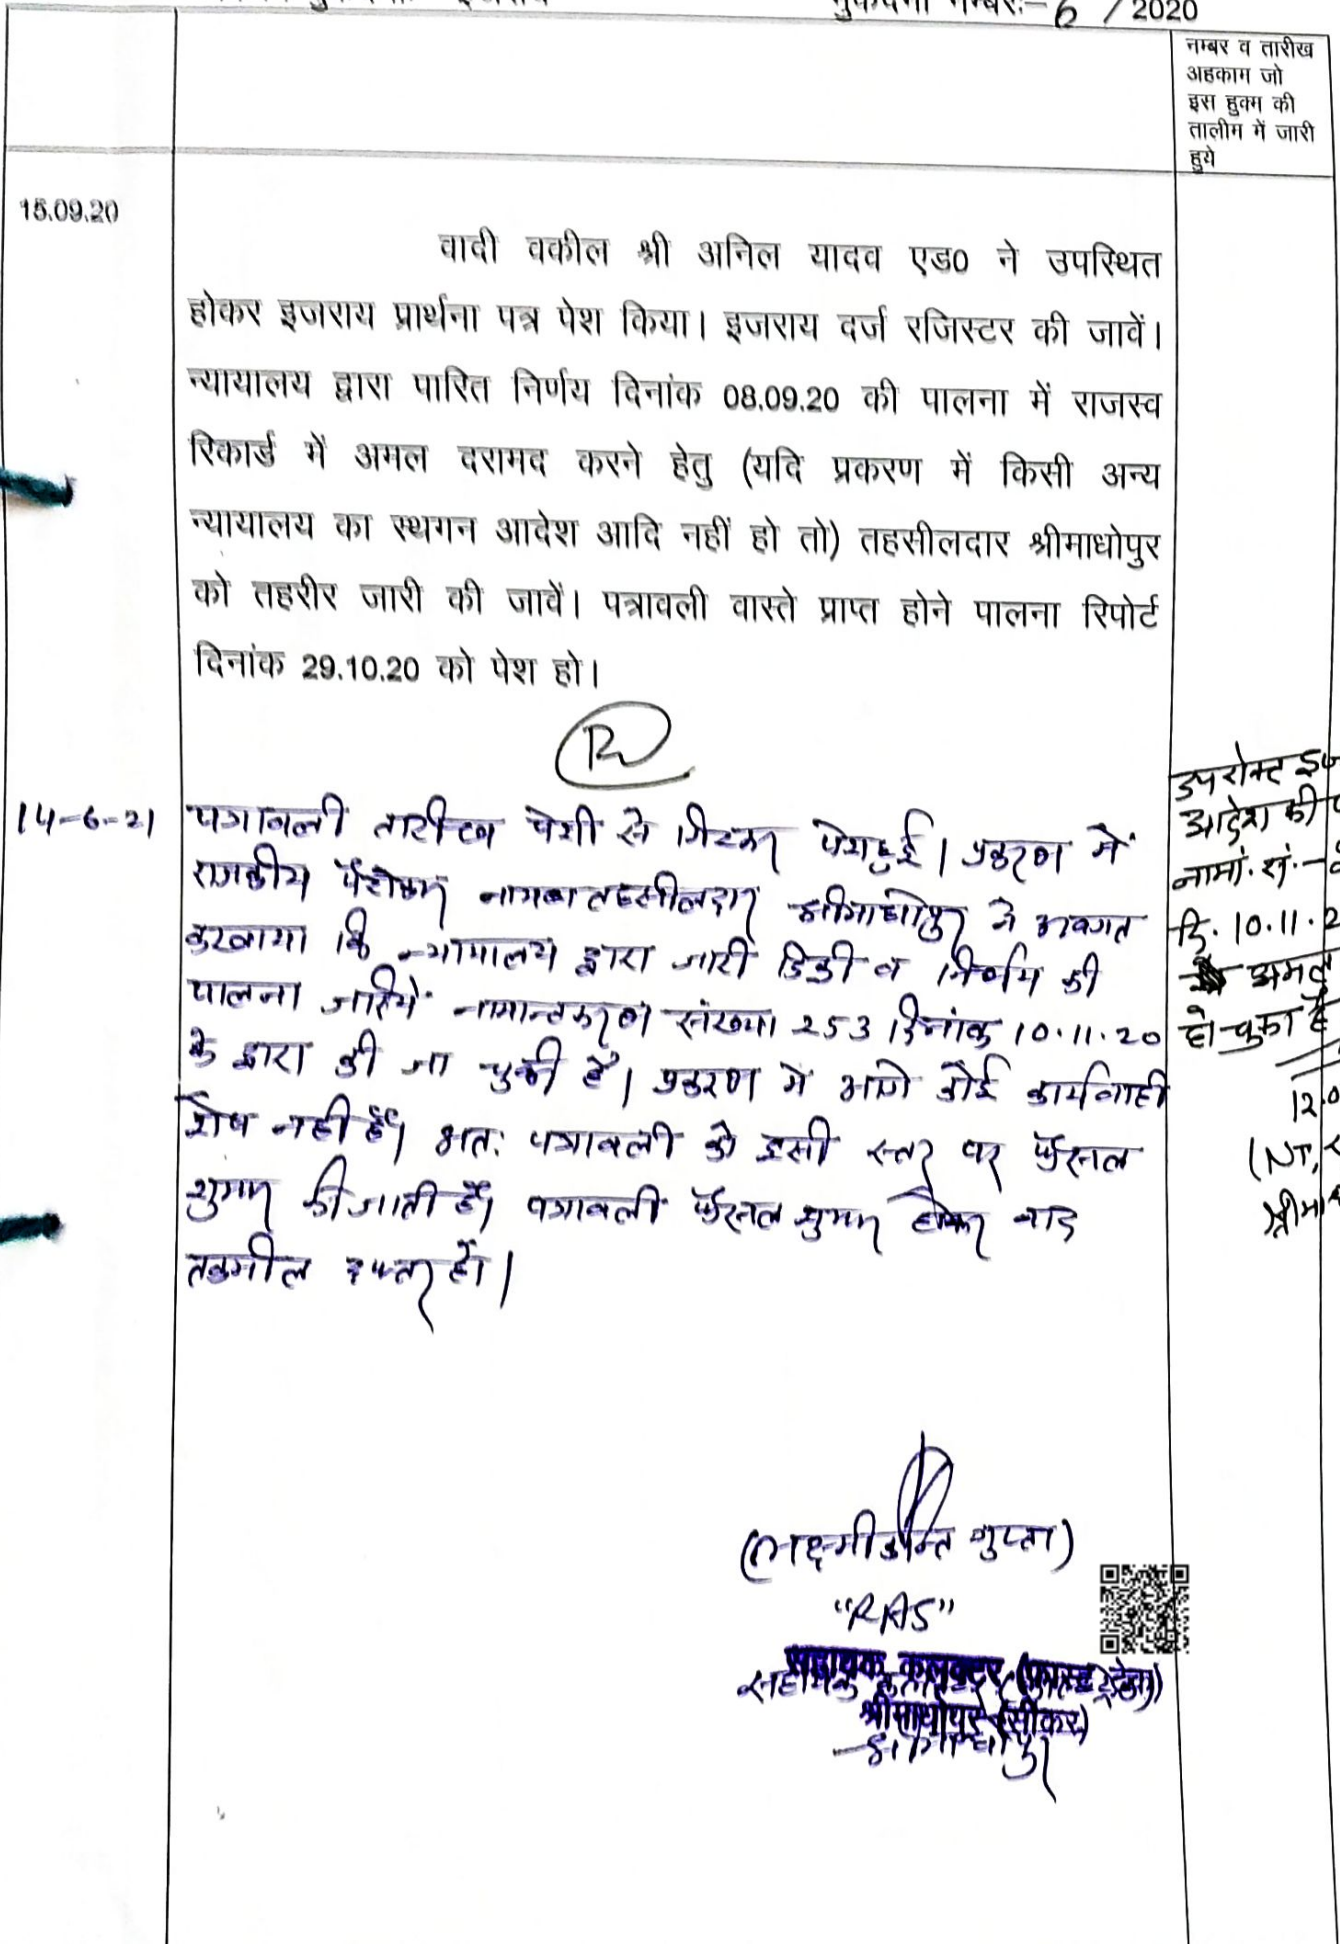 6 / 2020
नम्बर व तारीख
अहकाम जो
इस हुक्म की
तालीम में जारी
हुये
15.09.20
वादी वकील श्री अनिल यादव एड0 ने उपस्थित
होकर इजराय प्रार्थना पत्र पेश किया। इजराय दर्ज रजिस्टर की जावें।
न्यायालय द्वारा पारित निर्णय दिनांक 08.09.20 की पालना में राजस्व
रिकार्ड में अमल दरामद करने हेतु (यदि प्रकरण में किसी अन्य
न्यायालय का स्थगन आदेश आदि नहीं हो तो) तहसीलदार श्रीमाधोपुर
को तहरीर जारी की जावें। पत्रावली वास्ते प्राप्त होने पालना रिपोर्ट
दिनांक 29.10.20 को पेश हो।
14-6-21
पत्रावली तारीख पेशी से पेश हुई। प्रकरण में
राजकीय पैरोकार नायब तहसीलदार श्रीमाधोपुर ने अवगत
करवाया कि न्यायालय द्वारा जारी डिक्री व निर्णय की
पालना जरिये नामान्तकरण संख्या 253 दिनांक 10.11.20
के द्वारा की जा चुकी है। प्रकरण में आगे कोई कार्यवाही
शेष नहीं है। अतः पत्रावली को इसी स्तर पर फैसल
शुमार की जाती है। पत्रावली फैसल शुमार होकर बाद
तकमील दफ्तर हो।
उपरोक्त
आदेश की
नामां. सं.-
दि. 10.11.2
अमल
हो चुका है
(NT,
(लक्ष्मीकान्त गुप्ता)
"RAS"
सहायक कलक्टर (फास्ट ट्रेक)
श्रीमाधोपुर (सीकर)
श्रीमाधोपुर